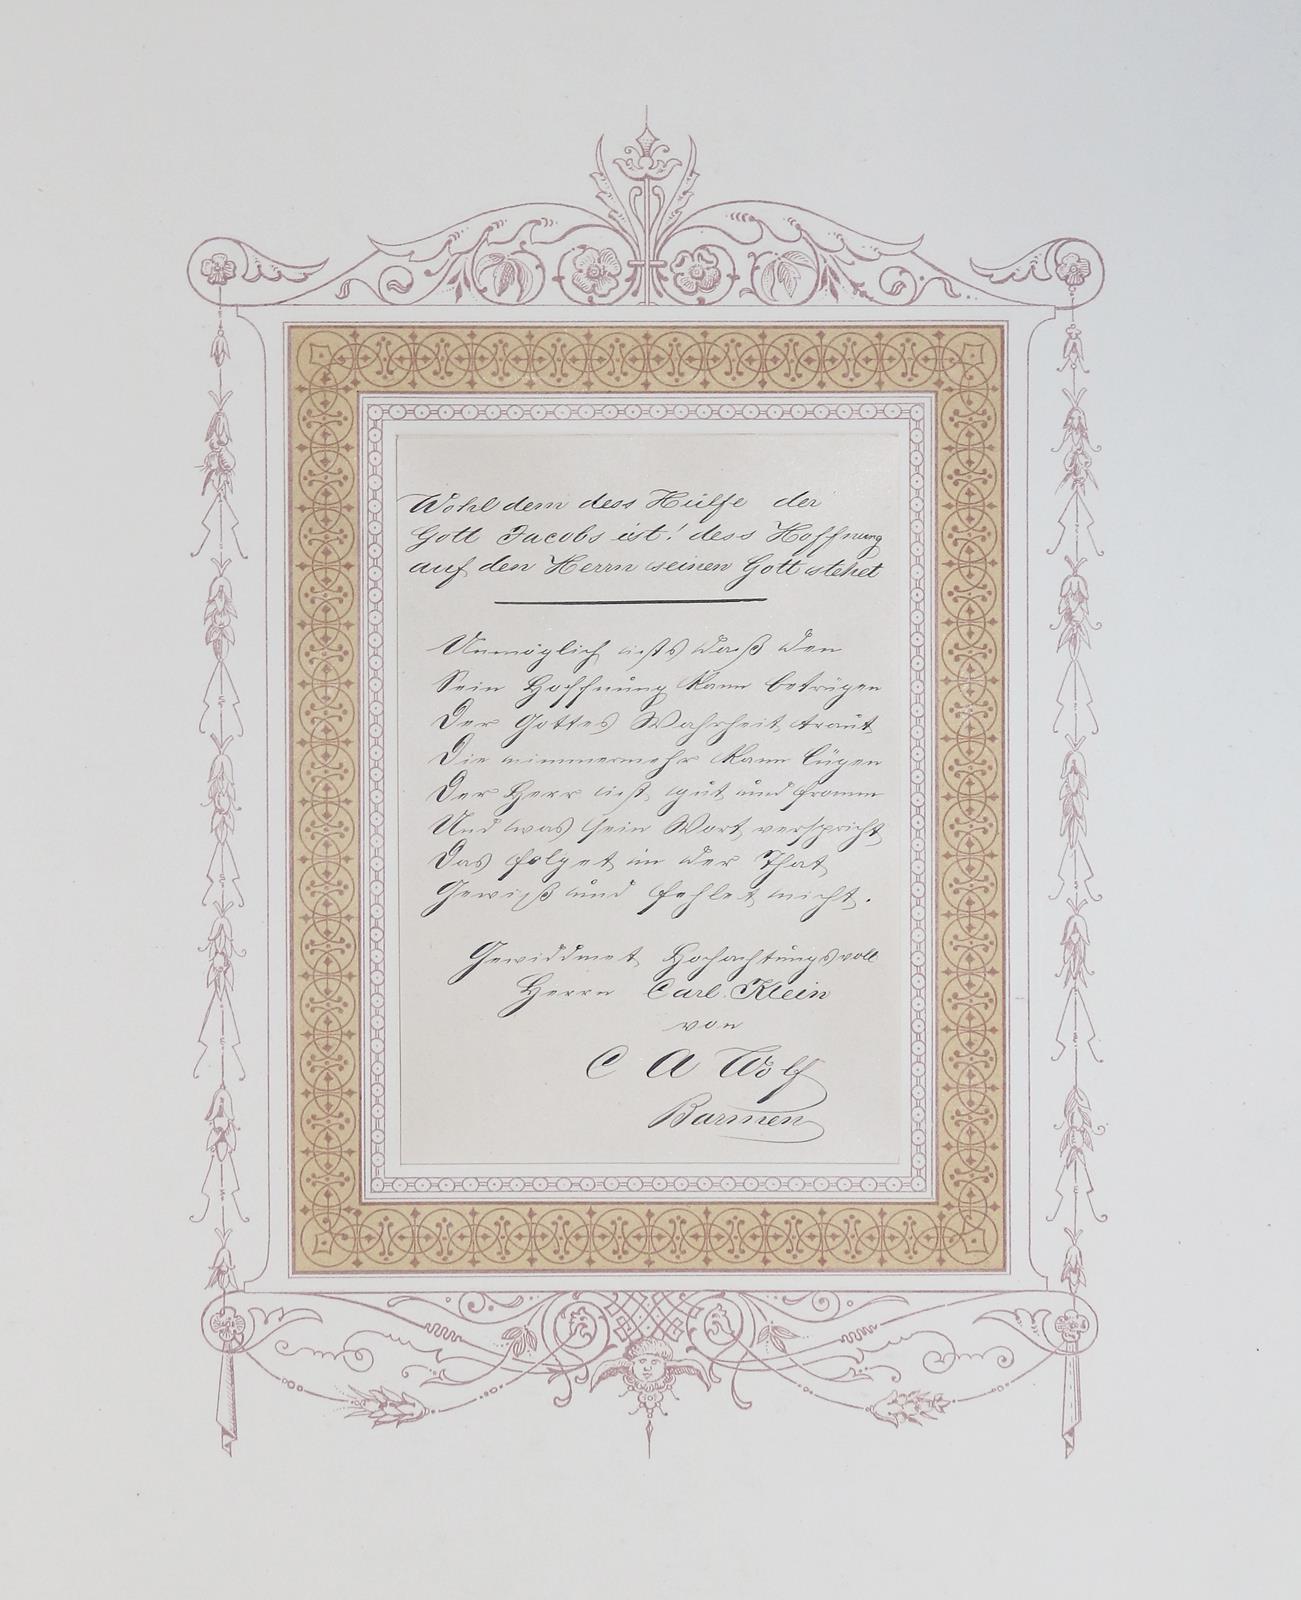 Wohl dem dess Hülfe der
Gott Jacobs ist! dess Hoffnung
auf den Herrn seinen Gott stehet
Unmöglich ists daß den
Sein Hoffnung kann betrügen
Der Gottes Wahrheit traut
Die nimmermehr kann lügen
Der Herr ist gut und fromm
Und was sein Wort verspricht
Das folget in der That
Gewiß und fehlet nicht.
Gewiddmet Hochachtungsvoll
Herrn Carl Klein
von
C A Wolf
Barmen